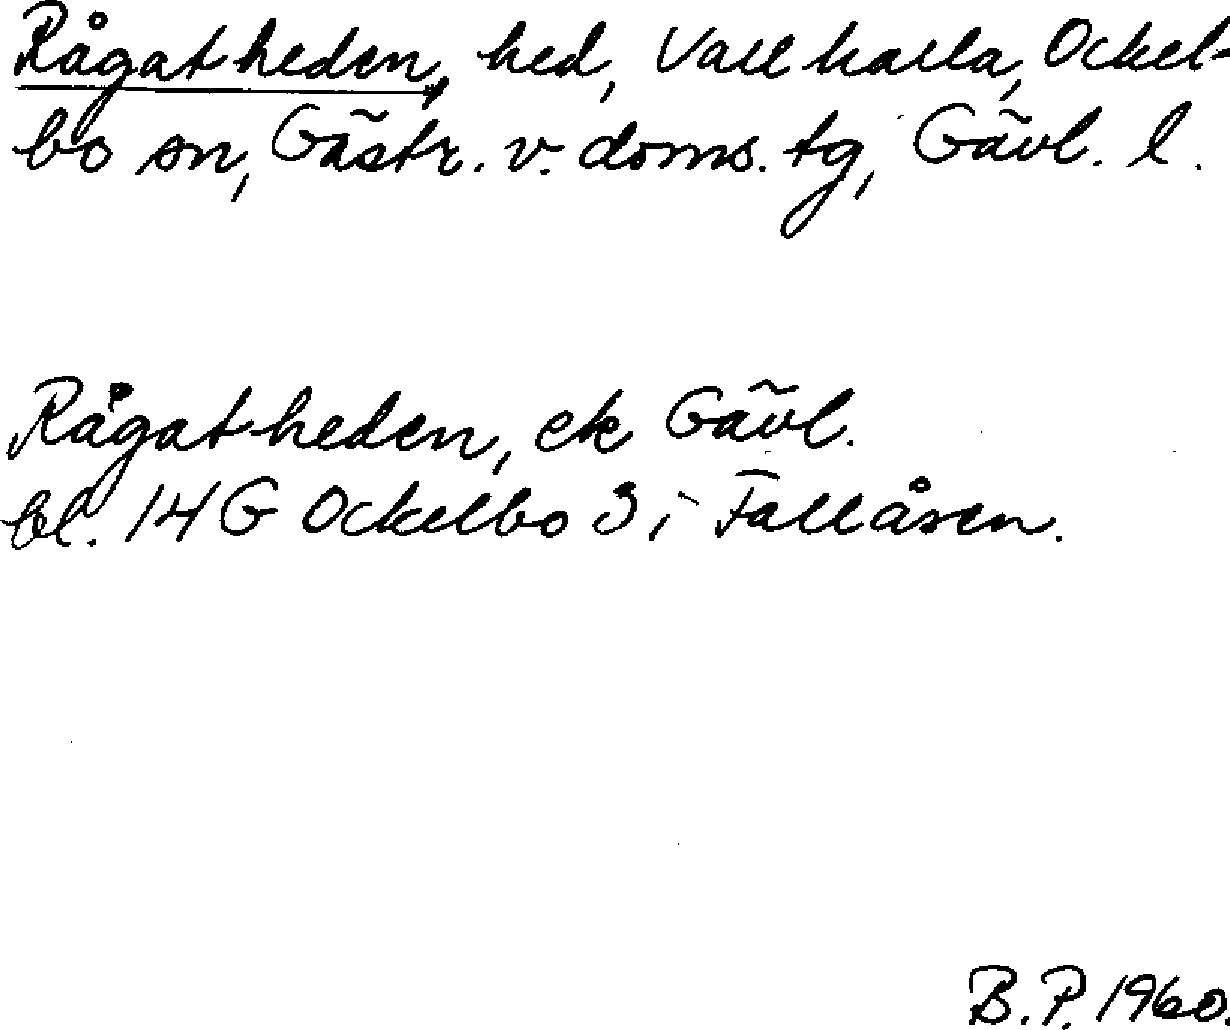 Rågatheden, hed, Vallhalla, Ockel-
bo sn, Gästr. v. doms. tg, Gävl. l.
Rågatheden, ek Gävl.
bl. 14 G Ockelbo 3 i Fallåsen.
B.P. 1960.